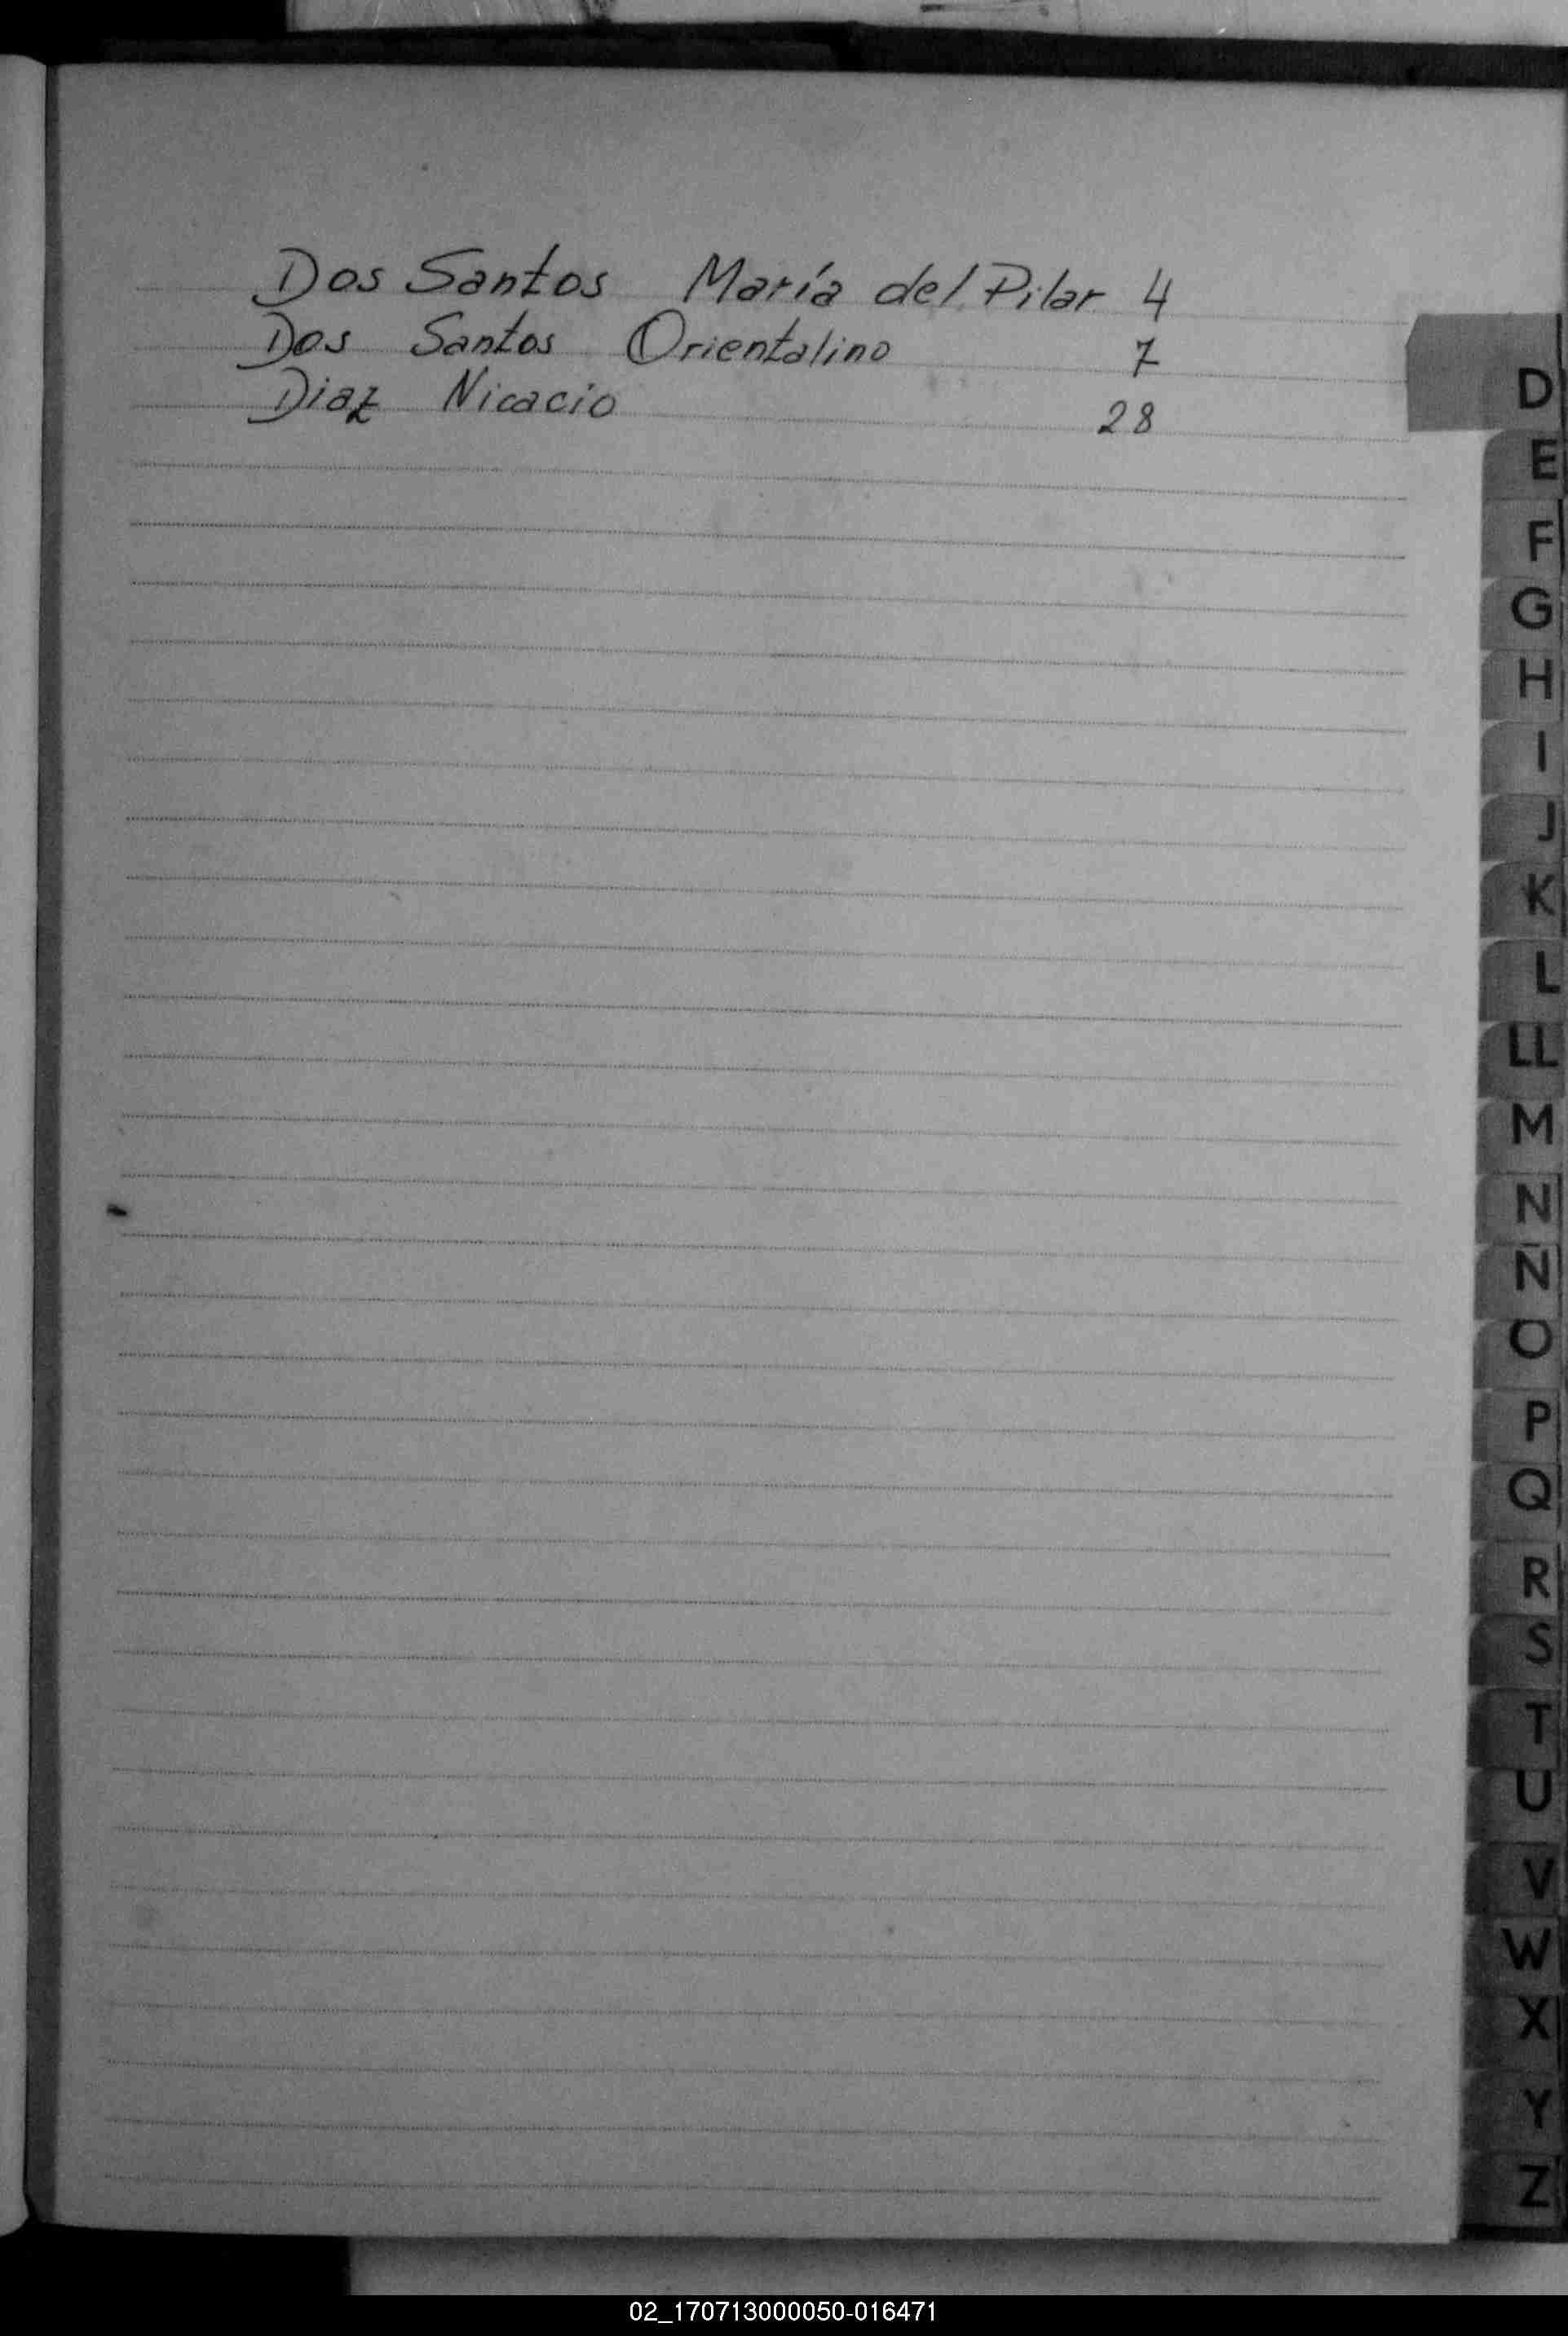 Dos Santos María del Pilar 4
Dos Santos Orientalino 7
Diaz Nicacio 28
D
E
F
G
H
I
J
K
L
LL
M
N
Ñ
O
P
Q
R
S
T
U
V
W
X
Y
Z
02_170713000050-016471